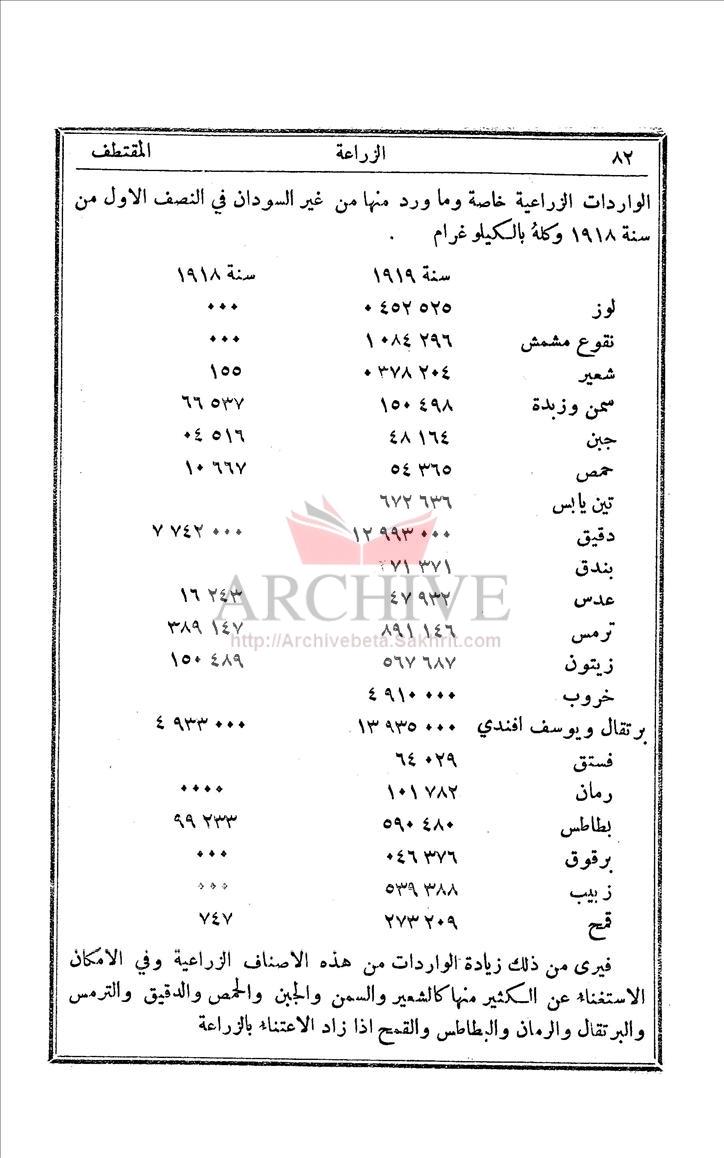 ٨٢ الزراعة المقتطف
الواردات الزراعية خاصة وما ورد منها من غير السودان في النصف الاول من
سنة ١٩١٨ وكلهُ بالكيلو غرام .
سنة ١٩١٩ سنة ١٩١٨
لوز ٠ ٤٥٢ ٥٢٥ ٠٠٠
نقوع مشمش ١ ٠٨٤ ٢٩٦ ٠٠٠
شعير ٠ ٣٧٨ ٢٠٤ ١٥٥
سمن وزبدة ١٥٠ ٤٩٨ ٦٦ ٥٣٧
جبن ٤٨ ١٦٤ ٠٤ ٥١٦
حمص ٥٤ ٣٦٥ ١٠ ٦٦٧
تين يابس ٦٧٢ ٦٣٦
دقيق ١٢ ٩٩٣ ٠٠٠ ٧ ٧٤٢ ٠٠٠
بندق ٧١ ٣٧١
عدس ٤٧ ٩٣٢ ١٦ ٢٤٣
ARCHIVE
ترمس ٨٩١ ١٤٦ ٣٨٩ ١٤٧
http://Archivebeta.Sakhrit.com
زيتون ٥٦٧ ٦٨٧ ١٥٠ ٤٨٩
خروب ٤ ٩١٠ ٠٠٠
برتقال ويوسف افندي ١٣ ٩٣٥ ٠٠٠ ٤ ٩٣٣ ٠٠٠
فستق ٦٤ ٠٢٩
رمان ١٠١ ٧٨٢ ٠٠٠٠
بطاطس ٥٩٠ ٤٨٠ ٩٩ ٢٣٣
برقوق ٠٤٦ ٣٧٦ ٠٠٠
زبيب ٥٣٩ ٣٨٨ ٠٠٠
قمح ٢٧٣ ٢٠٩ ٧٤٧
فيرى من ذلك زيادة الواردات من هذه الاصناف الزراعية وفي الامكان
الاستغناء عن الكثير منها كالشعير والسمن والجبن والحمص والدقيق والترمس
والبرتقال والرمان والبطاطس والقمح اذا زاد الاعتناء بالزراعة